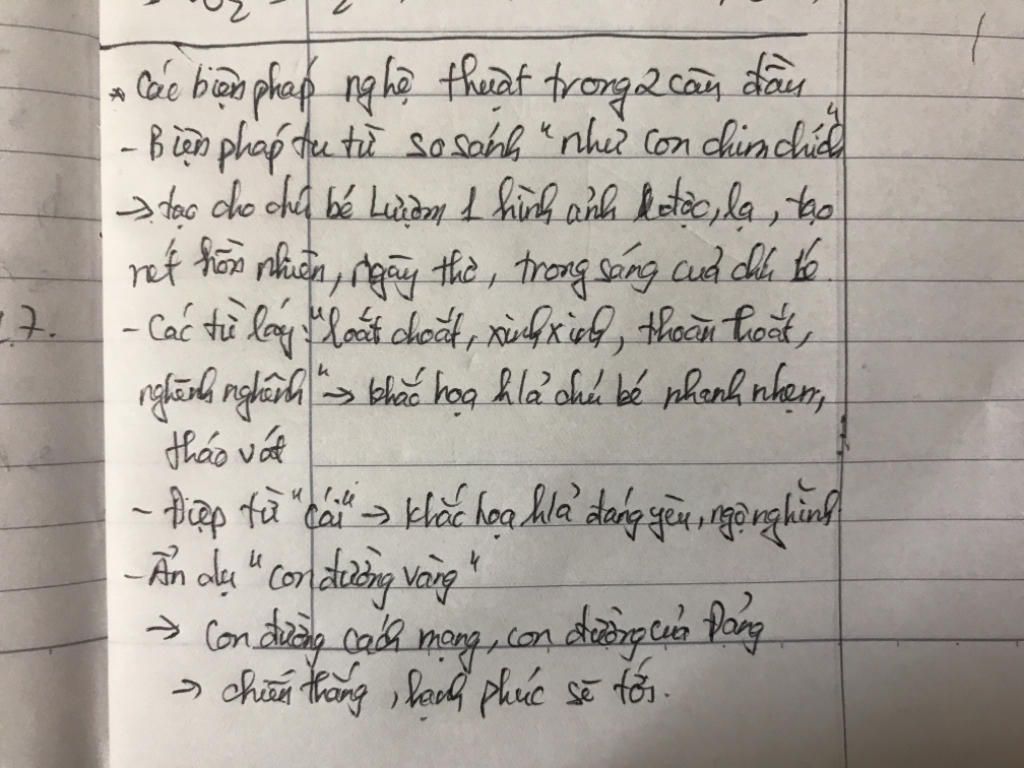 * Các biện pháp nghệ thuật trong 2 câu đầu
- Biện pháp tu từ so sánh "như con chim chích"
→ tạo cho chú bé Lượm 1 hình ảnh độc, lạ, tạo
nét hồn nhiên, ngây thơ, trong sáng của chú bé
1.7.
- Các từ láy: "loắt choắt, xinh xinh, thoăn thoắt,
nghênh nghênh" → khắc hoạ h/ả chú bé nhanh nhẹn,
tháo vát
- Điệp từ "cái" → khắc hoạ h/ả đáng yêu, ngộ nghĩnh
- Ẩn dụ "con đường vàng"
→ con đường cách mạng, con đường của Đảng
→ chiến thắng, hạnh phúc sẽ tới.